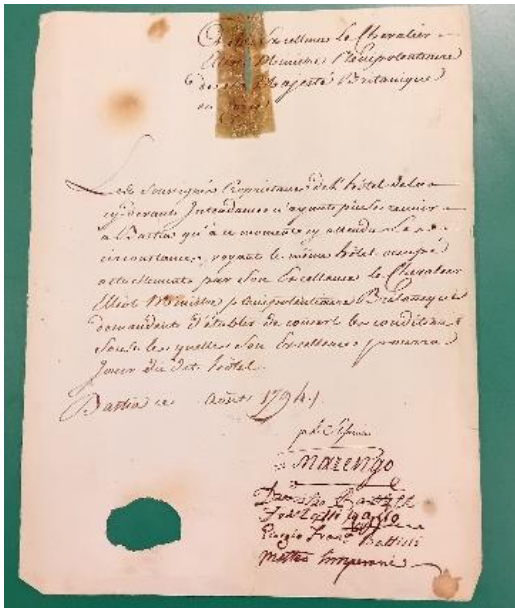 Son Excellence Le Chevalier
Elliot Ministre Plenipotentiaire
de sa Majesté Britanique
en Corse
Les Soussignés Proprietaires de l'hôtel de la
cy-devant Intendance n'ayant pu se reunir
a Bastia qu'à ce moment cy attendu les
circonstances, voyant le même hôtel occupé
actuellement par Son Excellence le Chevalier
Elliot Ministre plenipotentiaire Britanique
demandent d'établir de concert les conditions
sous les quelles Son Excellence pourra
jouir du dit hôtel.
Bastia ce Août 1794.
Marengo
Battisti
Giorgio Franc. Battisti
Matteo Imperani